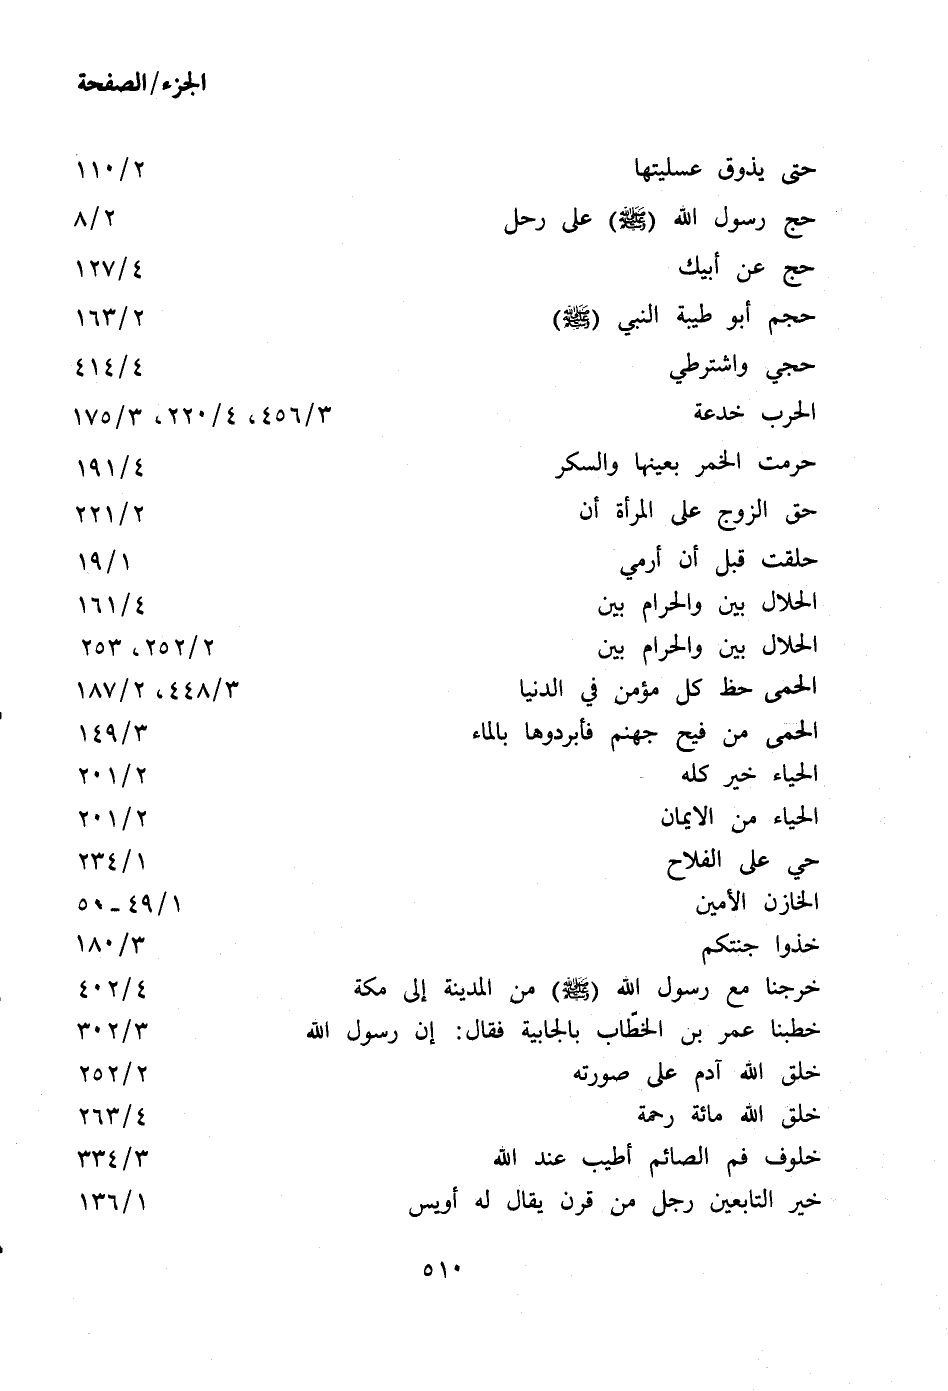 الجزء/الصفحة
حتى يذوق عسليتها ١١٠/٢
حج رسول الله (ﷺ) على رحل ٨/٢
حج عن أبيك ١٢٧/٤
حجم أبو طيبة النبي (ﷺ) ١٦٣/٢
حجي واشترطي ٤١٤/٤
الحرب خدعة ٤٥٦/٣، ٢٢٠/٤، ١٧٥/٣
حرمت الخمر بعينها والسكر ١٩١/٤
حق الزوج على المرأة أن ٢٢١/٢
حلقت قبل أن أرمي ١٩/١
الحلال بين والحرام بين ١٦١/٤
الحلال بين والحرام بين ٢٥٢/٢، ٢٥٣
الحمى حظ كل مؤمن في الدنيا ٤٤٨/٣، ١٨٧/٢
الحمى من فيح جهنم فأبردوها بالماء ١٤٩/٣
الحياء خير كله ٢٠١/٢
الحياء من الايمان ٢٠١/٢
حي على الفلاح ٢٣٤/١
الخازن الأمين ٤٩/١ - ٥٠
خذوا جنتكم ١٨٠/٣
خرجنا مع رسول الله (ﷺ) من المدينة إلى مكة ٤٠٢/٤
خطبنا عمر بن الخطّاب بالجابية فقال: إن رسول الله ٣٠٢/٣
خلق الله آدم على صورته ٢٥٢/٢
خلق الله مائة رحمة ٢٦٣/٤
خلوف فم الصائم أطيب عند الله ٣٣٤/٣
خير التابعين رجل من قرن يقال له أويس ١٣٦/١
٥١٠